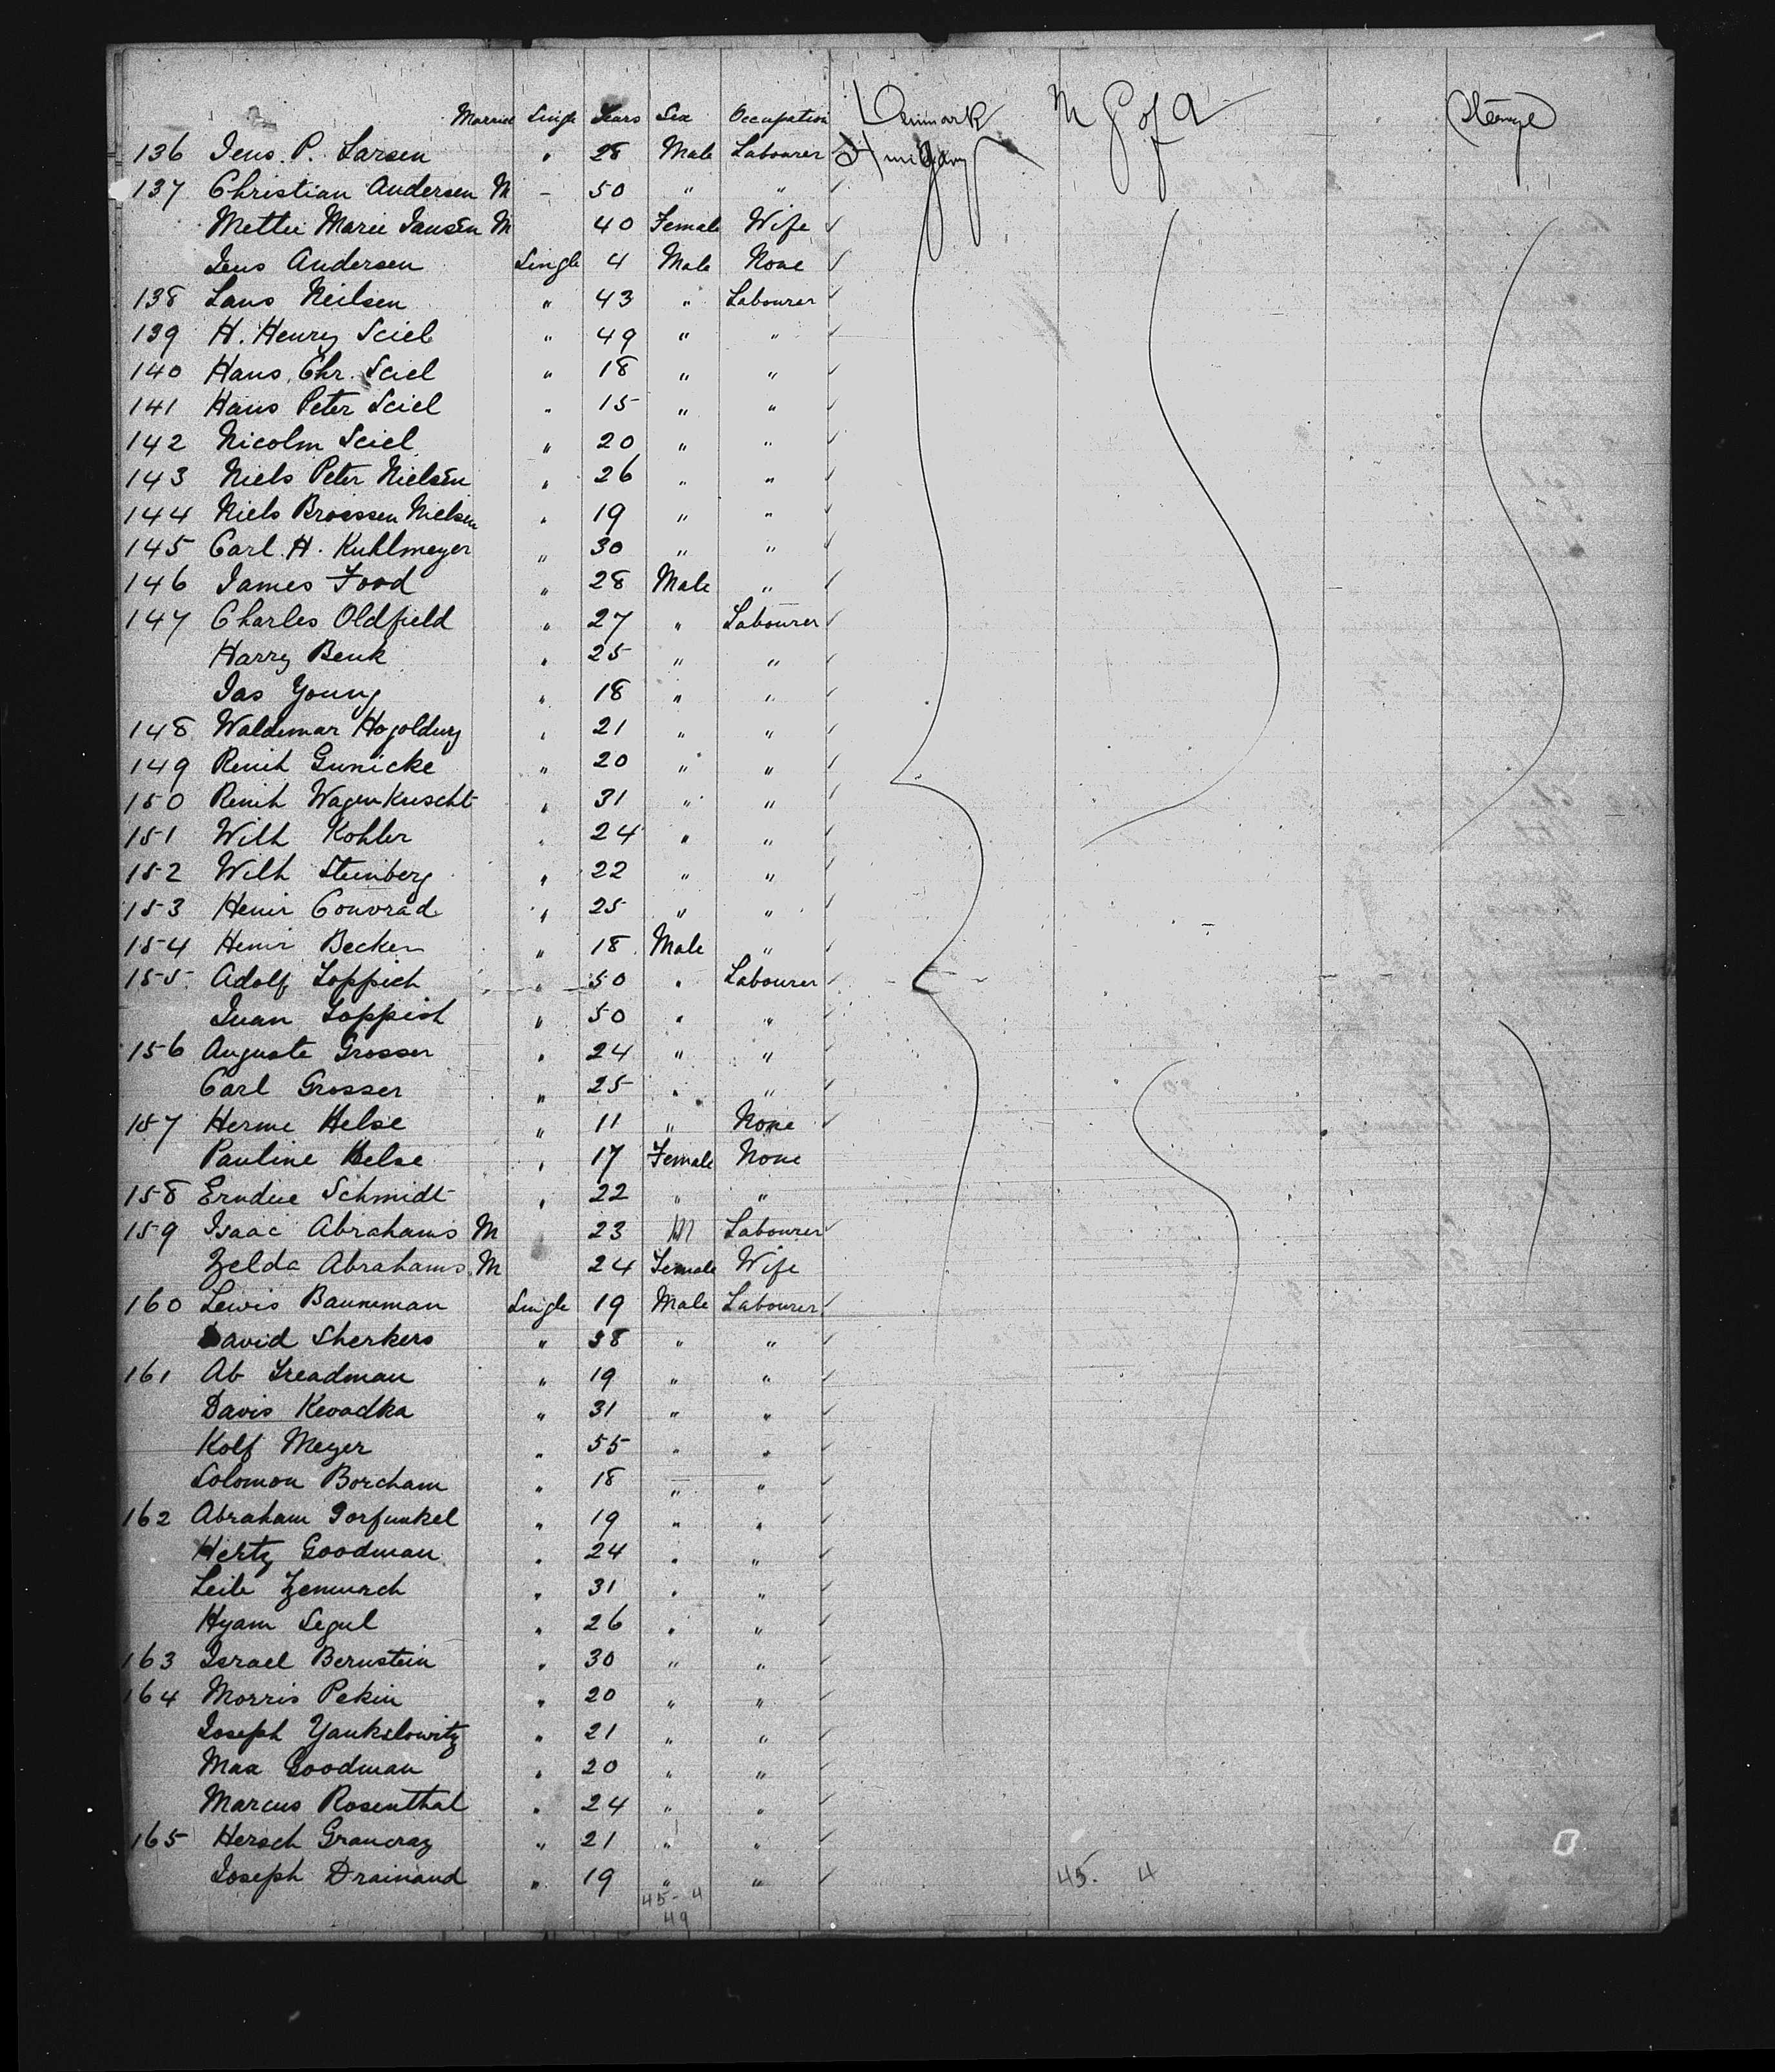 Married Single Years Sex Occupation Denmark U S of A Steerage
136 Jens. P. Larsen " 28 Male Labourer
137 Christian Andersen M - 50 " "
Mettie Marie Jansen M 40 Female Wife
Jens Andersen Single 4 Male None
138 Lans Neilsen " 43 " Labourer
139 H. Henry Sciel " 49 " "
140 Hans. Chr. Sciel " 18 " "
141 Hans Peter Sciel " 15 " "
142 Nicolm Sciel " 20 " "
143 Niels Peter Nielsen " 26 " "
144 Niels Broessen Nielsen " 19 " "
145 Carl. H. Kuhlmeyer " 30 " "
146 James Food " 28 Male "
147 Charles Oldfield " 27 " Labourer
Harry Benk " 25 " "
Jas Young " 18 " "
148 Waldemar " 21 " "
149 Reinh Gunicke " 20 " "
150 Reinh Wagenkuscht " 31 " "
151 Wilh Kohler " 24 " "
152 Wilh Steinberg " 22 " "
153 Heinr Conrad " 25 " "
154 Heinr Becker " 18 Male "
155 Adolf Loppich " 50 " Labourer
Juan Loppich " 50 " "
156 Auguste Grosser " 24 " "
Carl Grosser " 25 " "
157 Herme Helse " 11 " None
Pauline Helse " 17 Female None
158 Erndue Schmidt " 22 " "
159 Isaac Abrahams M 23 M Labourer
Zelda Abrahams M 24 Female Wife
160 Lewis Bauneman Single 19 Male Labourer
David Sherkers " 38 " "
161 Ab Treadman " 19 " "
Davis Kewadka " 31 " "
Kolf Meyer " 55 " "
Solomon Borcham " 18 " "
162 Abraham Gorfunkel " 19 " "
Hertz Goodman " 24 " "
Leib Zemurch " 31 " "
Hyam Segul " 26 " "
163 Israel Bernstein " 30 " "
164 Morris Pekin " 20 " "
Joseph Yankelowitz " 21 " "
Max Goodman " 20 " "
Marcus Rosenthal " 24 " "
165 Hersch Grancray " 21 " "
Joseph Drainand " 19 " " 45. 4
45-4
49